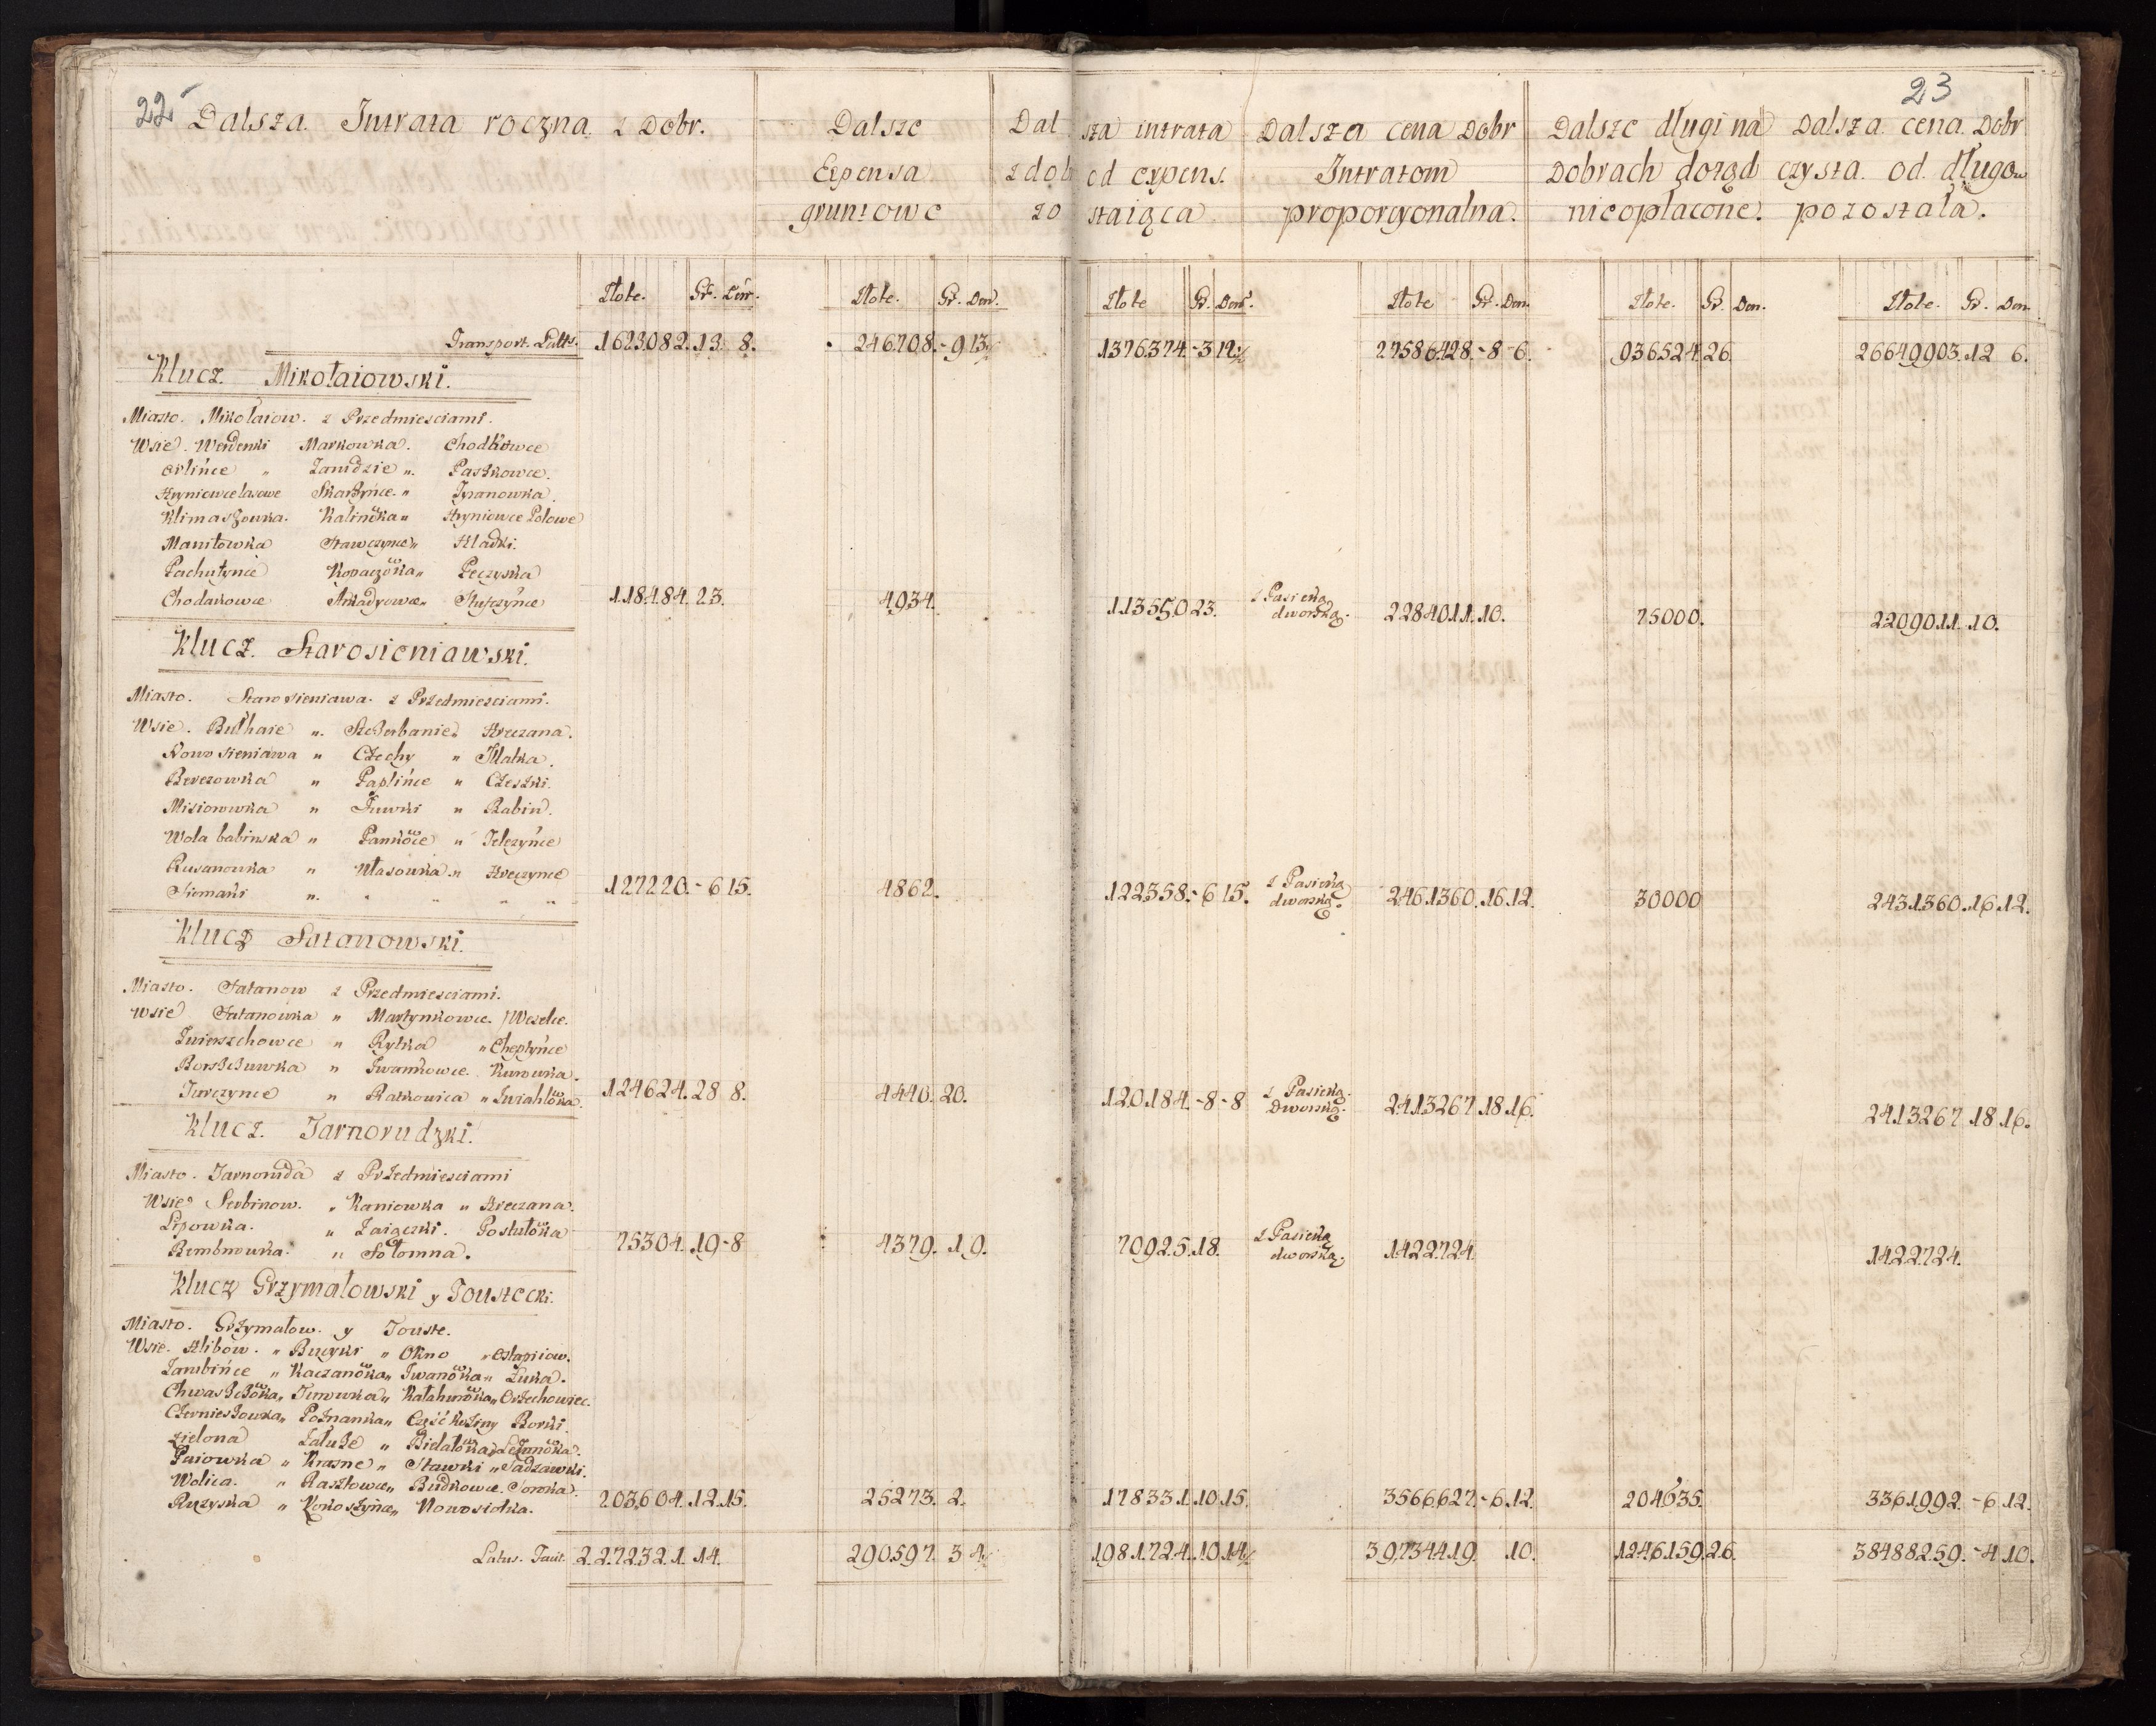 22
23
Dalsza. Intrata roczna. z Dobr.
Dalsze
Expensa
gruntowe
Dalsza intrata
z dob od expens.
zo staiąca
Dalsza cena Dobr
Intratom
proporcyonalna.
Dalsze długi na
Dobrach dotąd
nieopłacone.
Dalsza. cena. Dobr
czysta. od. długow
pozostała.
Złote. Gr. Den. Złote. Gr. Den. Złote Gr. Den. Złote Gr. Den. Złote. Gr. Den. Złote. Gr. Den.
Transport. 1623082.13. 8. 246708.-9 13½ 1376374.-3 12½ 27586428.-8-6. 936524.26. 26649903.12 6.
Klucz. Mikołaiowski.
Miasto. Mikołaiow. z Przedmiesciami.
Wsie. Werdenki Markowka. Chodkowce
Orlińce " Zawidzie ". Paszkowce.
Hryniowce lasowe Skarżyńce. "
Klimaszowka. Kalinôka " Hryniowce Polowe
Maniłowka Stawczynce " Hładki.
Pachutyńce Kopaczôka " Peczyska
Chodakowce Arkadyowce "
118484. 23. 4934. 113550 23. z Pasieką dworską. 2284011. 10. 75000. 2209011. 10.
Klucz. Starosieniawski.
Miasto. Starosieniawa. z Przedmiesciami.
Wsie. Bułhaie ". Szczerbanie " Hreczana.
Nowosieniawa " Czechy " Iłlatka.
Berezowka " Paplińce " Czeszki.
Misiorowka " Huwki " Babin.
Wola babinska " Pankôce " Teleżyńce
Rusanowka " Własowka " Hreczynce
Siomaki ". " " " "
127220.-6 15. 4862. 122358.-6 15. z Pasieką dworską. 2461360.16.12. 30000 2431360.16.12.
Klucz Satanowski.
Miasto. Satanow z Przedmiesciami.
Wsie Satanowka " Martynkowce. Weselec.
Zwierzchowce " Rytka " Cheptyńce
Borszczuwka " Iwankowce. Kurowka.
Iurczynce " Ratkowica "
124624. 28 8. 4440. 20. 120184.-8-8 z Pasieką dworską. 2413267. 18.16. 2413267 .18.16.
Klucz. Tarnorudzki.
Miasto. Tarnoruda z Przedmiesciami
Wsie Serbinow. " Kaniowka " Hreczana.
Lipowka. " Zaiączki. Postułôka
" Sołomna.
75304. 19-8 4379. 19. 70925. 18. z Pasieką dworską. 1422724. 1422724.
Klucz Grzymałowski y Toustecki.
Miasto. Grzymałow. y Touste.
Wsie. Hlibow. " Bucyki " Okno " Ostapiiow.
Zarubińce " Kaczanôka " Iwanôka " Łuka.
Chwaszczôka " Turowka " Kałaharôka " Orzechowiec.
Czerniszowka " Poznanka " Część Borki.
Zielona Załuże " Bielałôka
Paiowka " Krasne " Stawki " Sadzawki.
Wolica. " Rasztowce " Budkowce. Soroka.
Ruzyska " Kokoszynce " Nowosiołka.
203604. 12. 15. 25273. 2. 178331. 10. 15. 3566627.-6.12. 204635. 3361992.-6.12.
Latus. Facit. 2.272321. 14. 290597. 3 4½ 1981724.10.14½ 39734419. 10. 1246159.26. 38488259.-4.10.